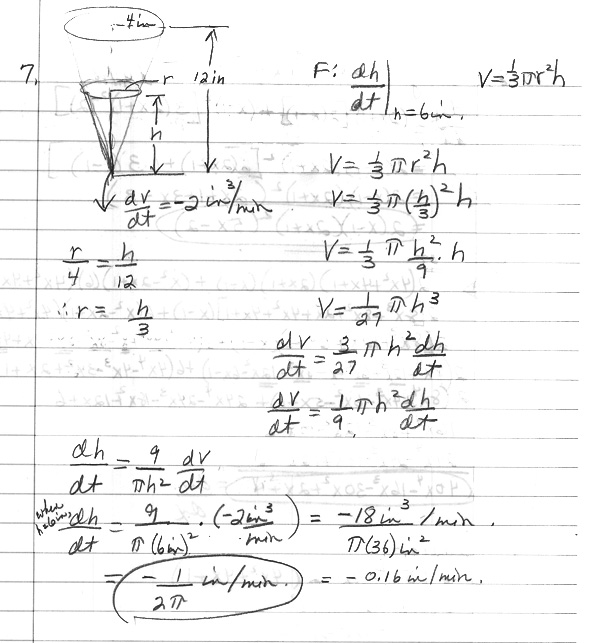 4in
7.
r
12in
h
F: dh/dt | h=6in.
V=1/3πr²h
dv/dt = -2 in³/min
V= 1/3 π r² h
V= 1/3 π (h/3)² h
r/4 = h/12
V= 1/3 π h²/9 · h
∴ r = h/3
V= 1/27 π h³
dv/dt = 3/27 π h² dh/dt
dv/dt = 1/9 π h² dh/dt
dh/dt = 9/πh² dv/dt
when h=6in dh/dt = 9/π(6in)² · (-2in³/min) = -18in³/min. / π(36)in²
= -1/2π in/min. = -0.16in/min.